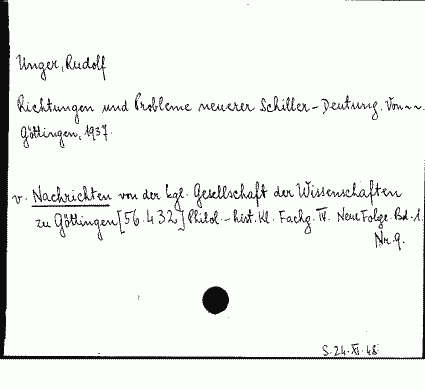 Unger, Rudolf
Richtungen und Probleme neuerer Schiller-Deutung. Von ~~.
Göttingen, 1937.
v. Nachrichten von der kgl. Gesellschaft der Wissenschaften
zu Göttingen [56.432] Philol.-hist. Kl. Fachg. IV. Neue Folge. Bd. 1.
Nr. 9.
S. 24. XI. 48.